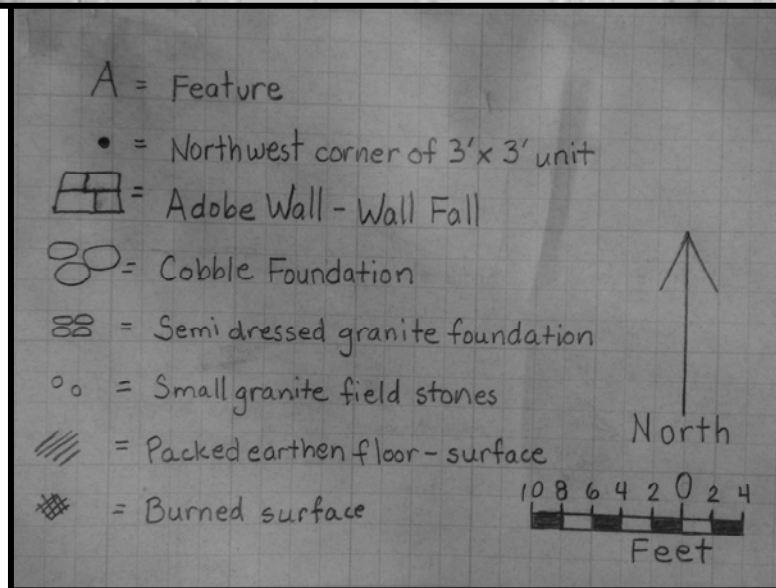 A = Feature
= Northwest corner of 3'x 3' unit
= Adobe Wall - Wall Fall
= Cobble Foundation
= Semi dressed granite foundation
= Small granite field stones
= Packed earthen floor - surface
= Burned surface
North
10 8 6 4 2 0 2 4
Feet